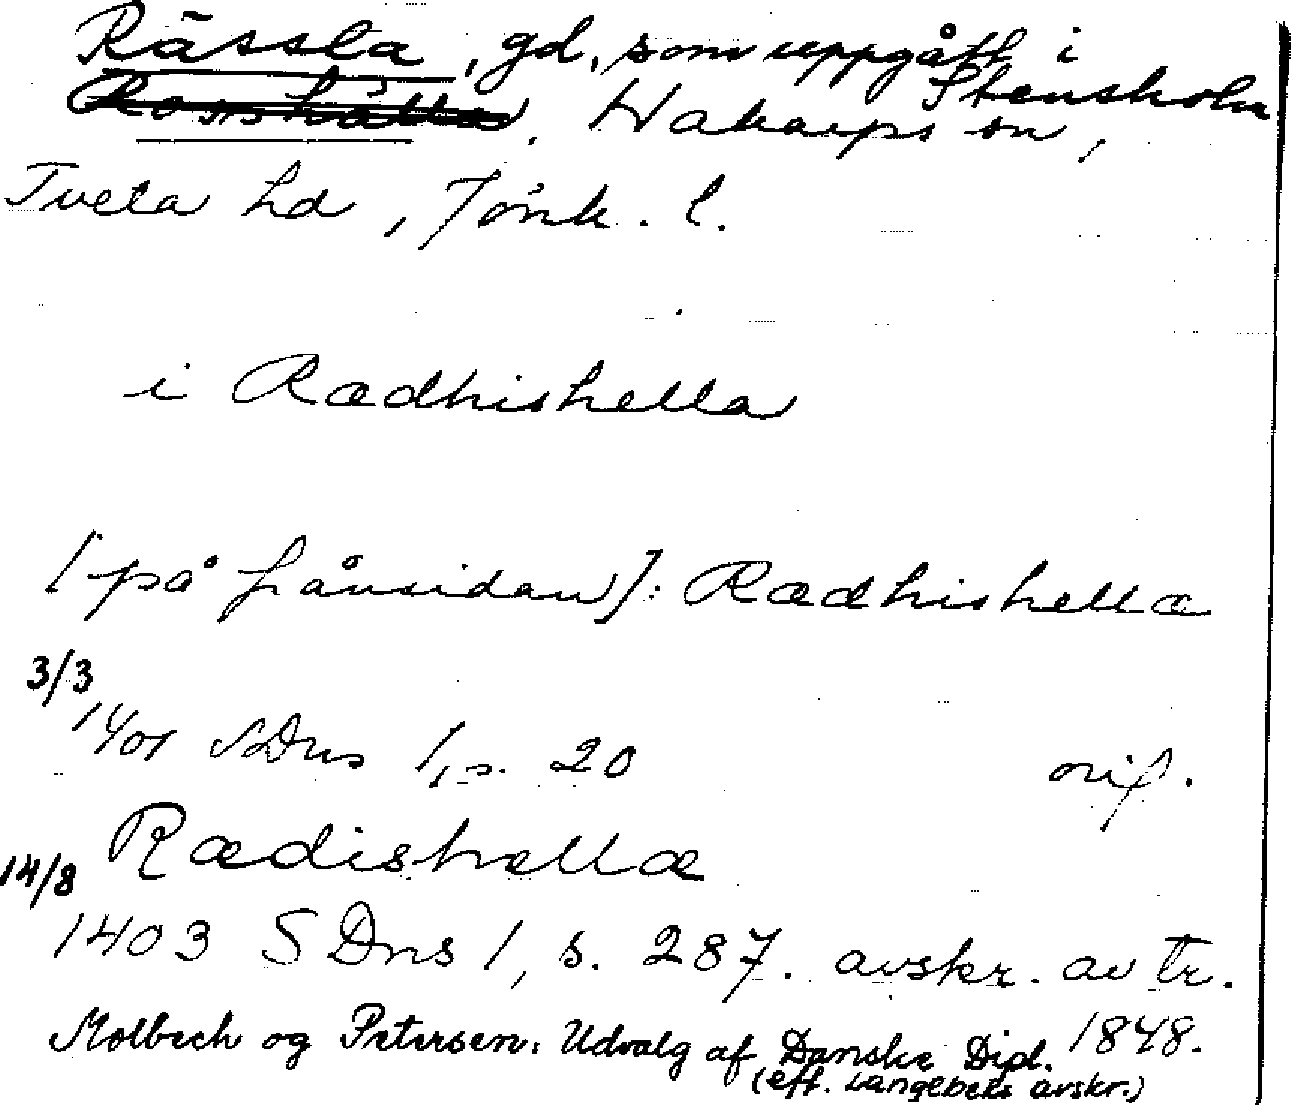 Rässla, gd, som uppgått i Stensholm
Rosshälla, Hakarps sn,
Tveta hd, Jönk. l.
i Rædhishella
[på frånsidan]: Rædhishellæ
3/3
1401 SDns 1, s. 20 orig.
Rædishællæ
14/8
1403 SDns 1, s. 287. avskr. av tr.
Molbech og Petersen: Udvalg af Danske Dipl. 1848.
(eft. Langebeks avskr.)